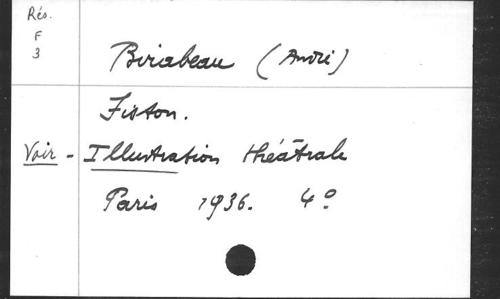 Rés.
F
3
Birabeau (André)
Fiston.
Voir - Illustration théâtrale
Paris 1936. 4º